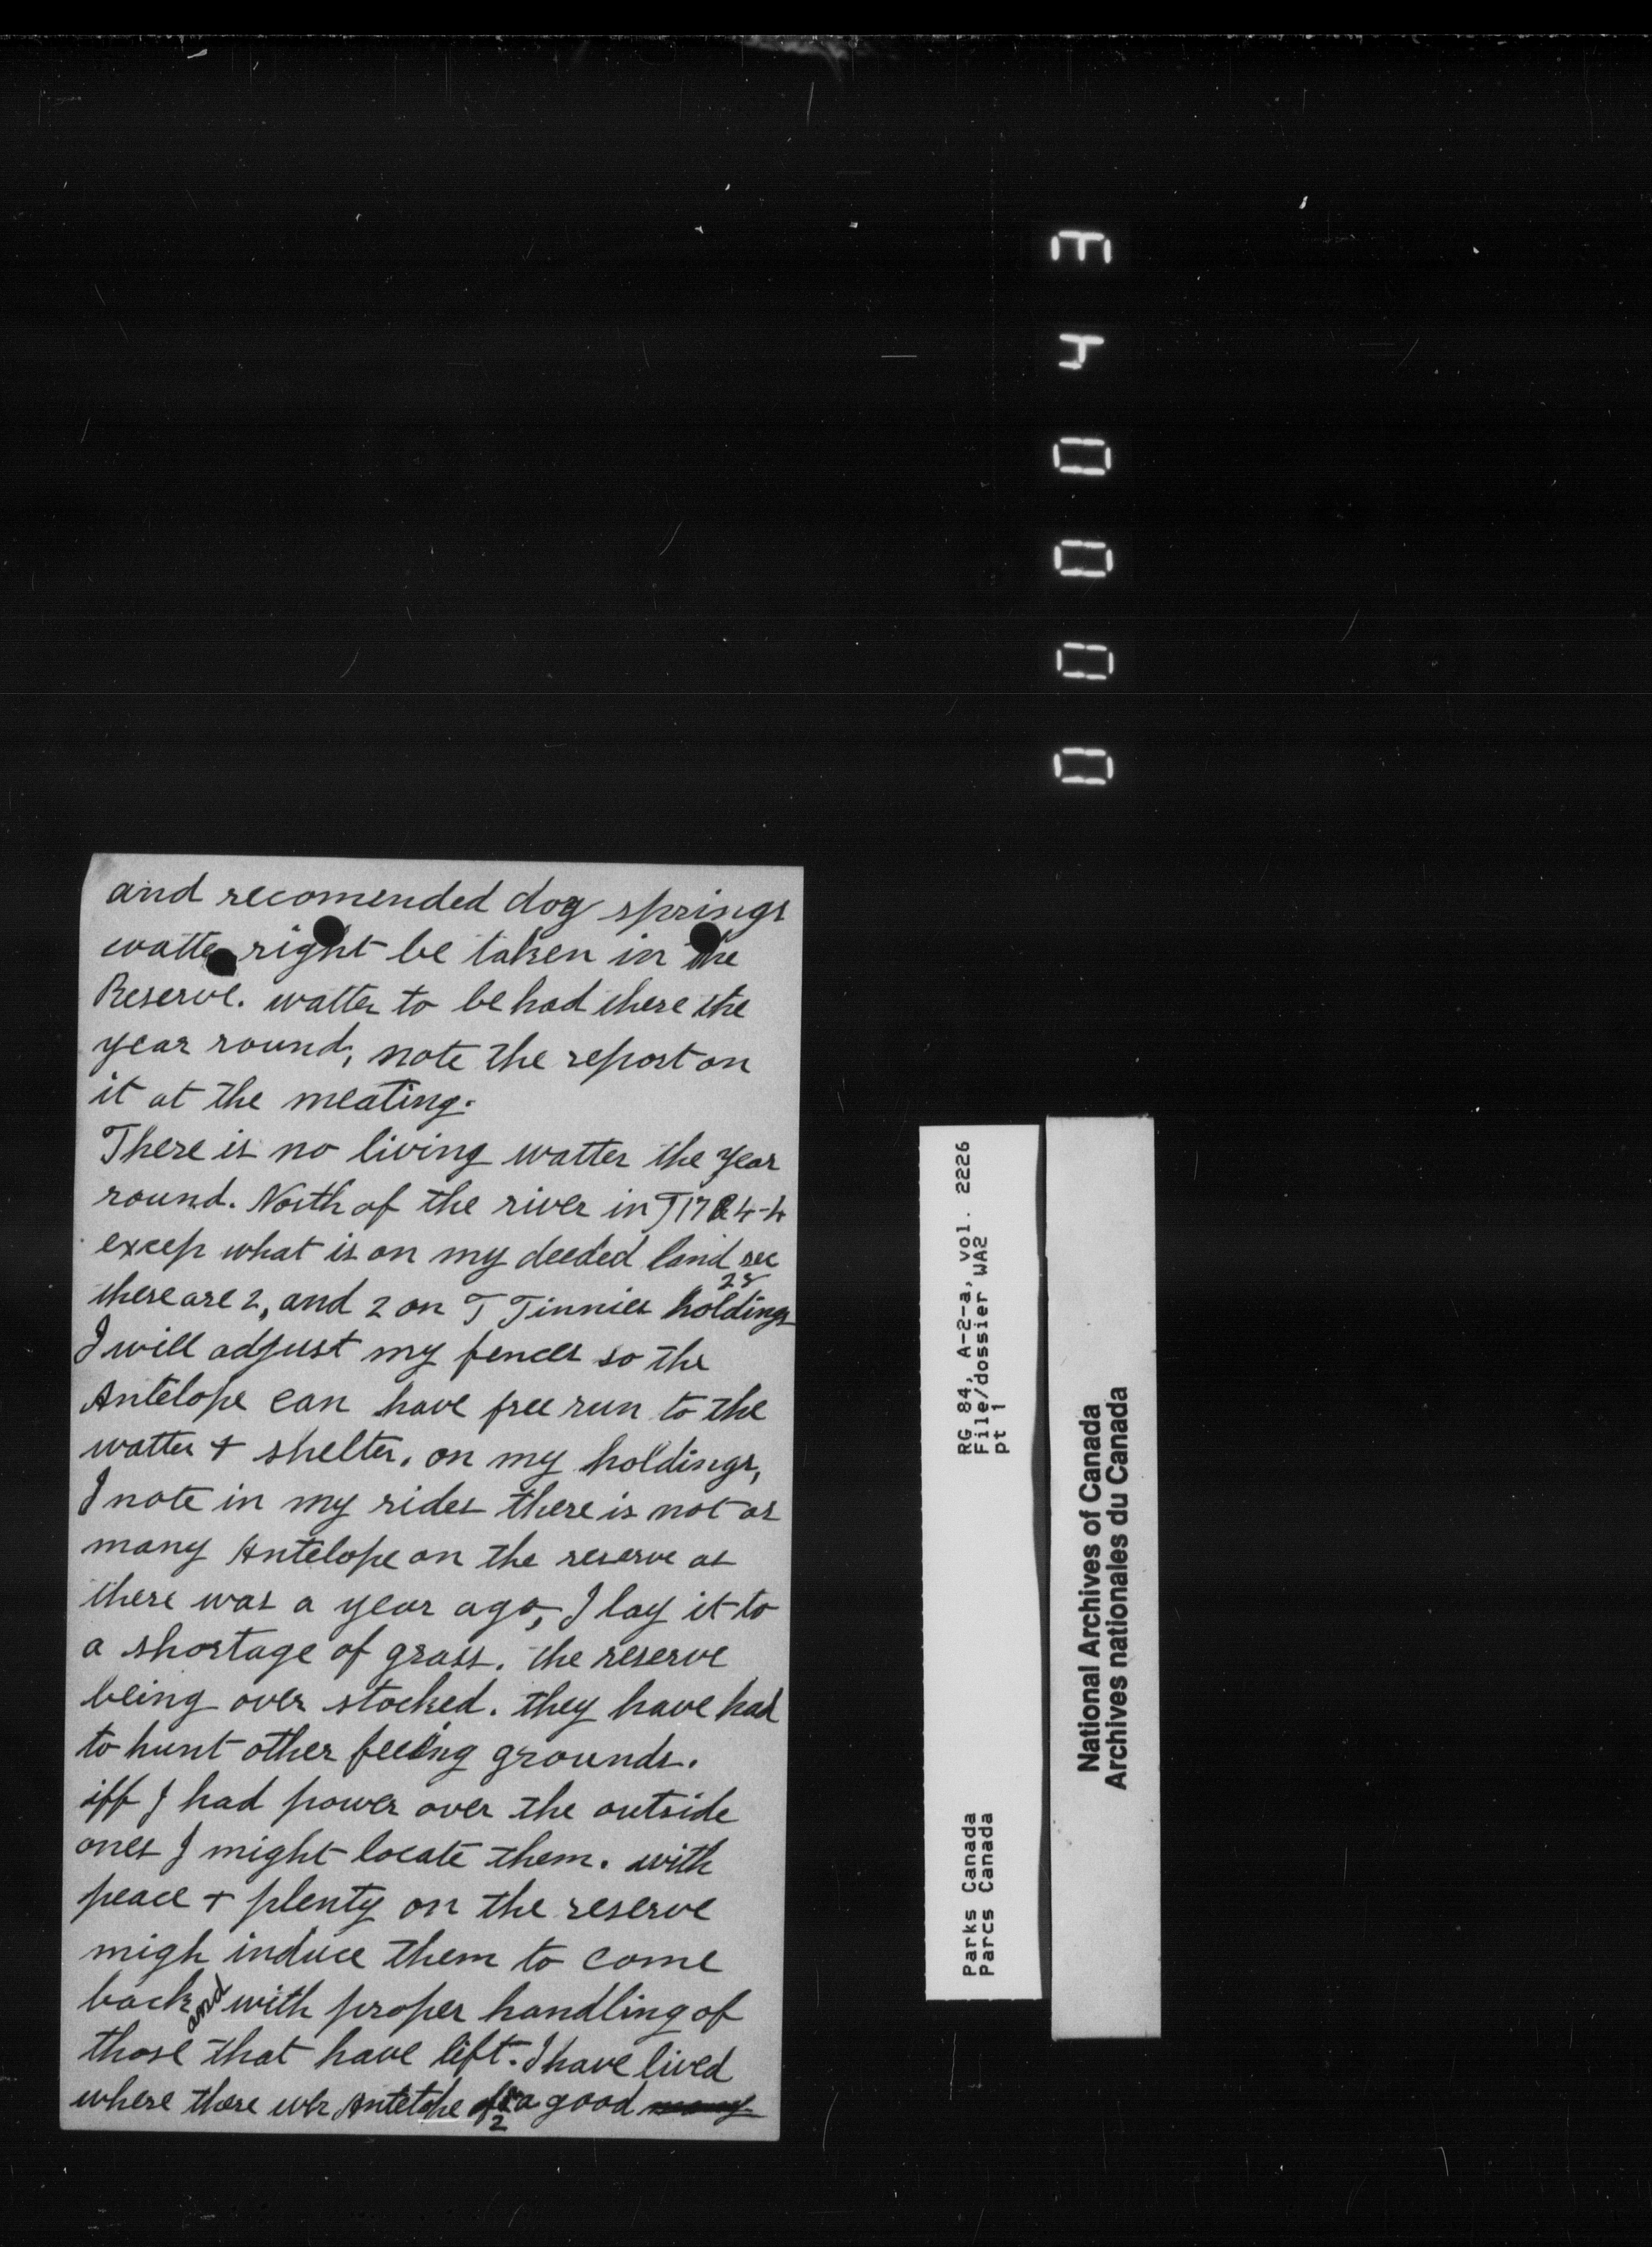 and recomended dog springs
watter right be taken in the
Reserve. watter to be had there the
year round, note the report on
it at the meating.
There is no living watter the year
round. North of the river in T17 R4-4
excep what is on my deeded land sec
28
there are 2, and 2 on T Tinnies holdings
I will adjust my fences so the
Antelope can have free run to the
watter + shelter. on my holdings,
I note in my rides there is not as
many Antelope on the reserve as
there was a year ago, I lay it to
a shortage of grass. the reserve
being over stocked. they have had
to hunt other feeing grounds.
iff I had power over the outside
ones I might locate them. with
peace + plenty on the reserve
migh induce them to come
back and with proper handling of
those that have lift. I have lived
where there wer Antelope for a good many
2
000043
RG 84, A-2-a, vol. 2226
File/dossier WA2
pt 1
Parks Canada
Parcs Canada
National Archives of Canada
Archives nationales du Canada